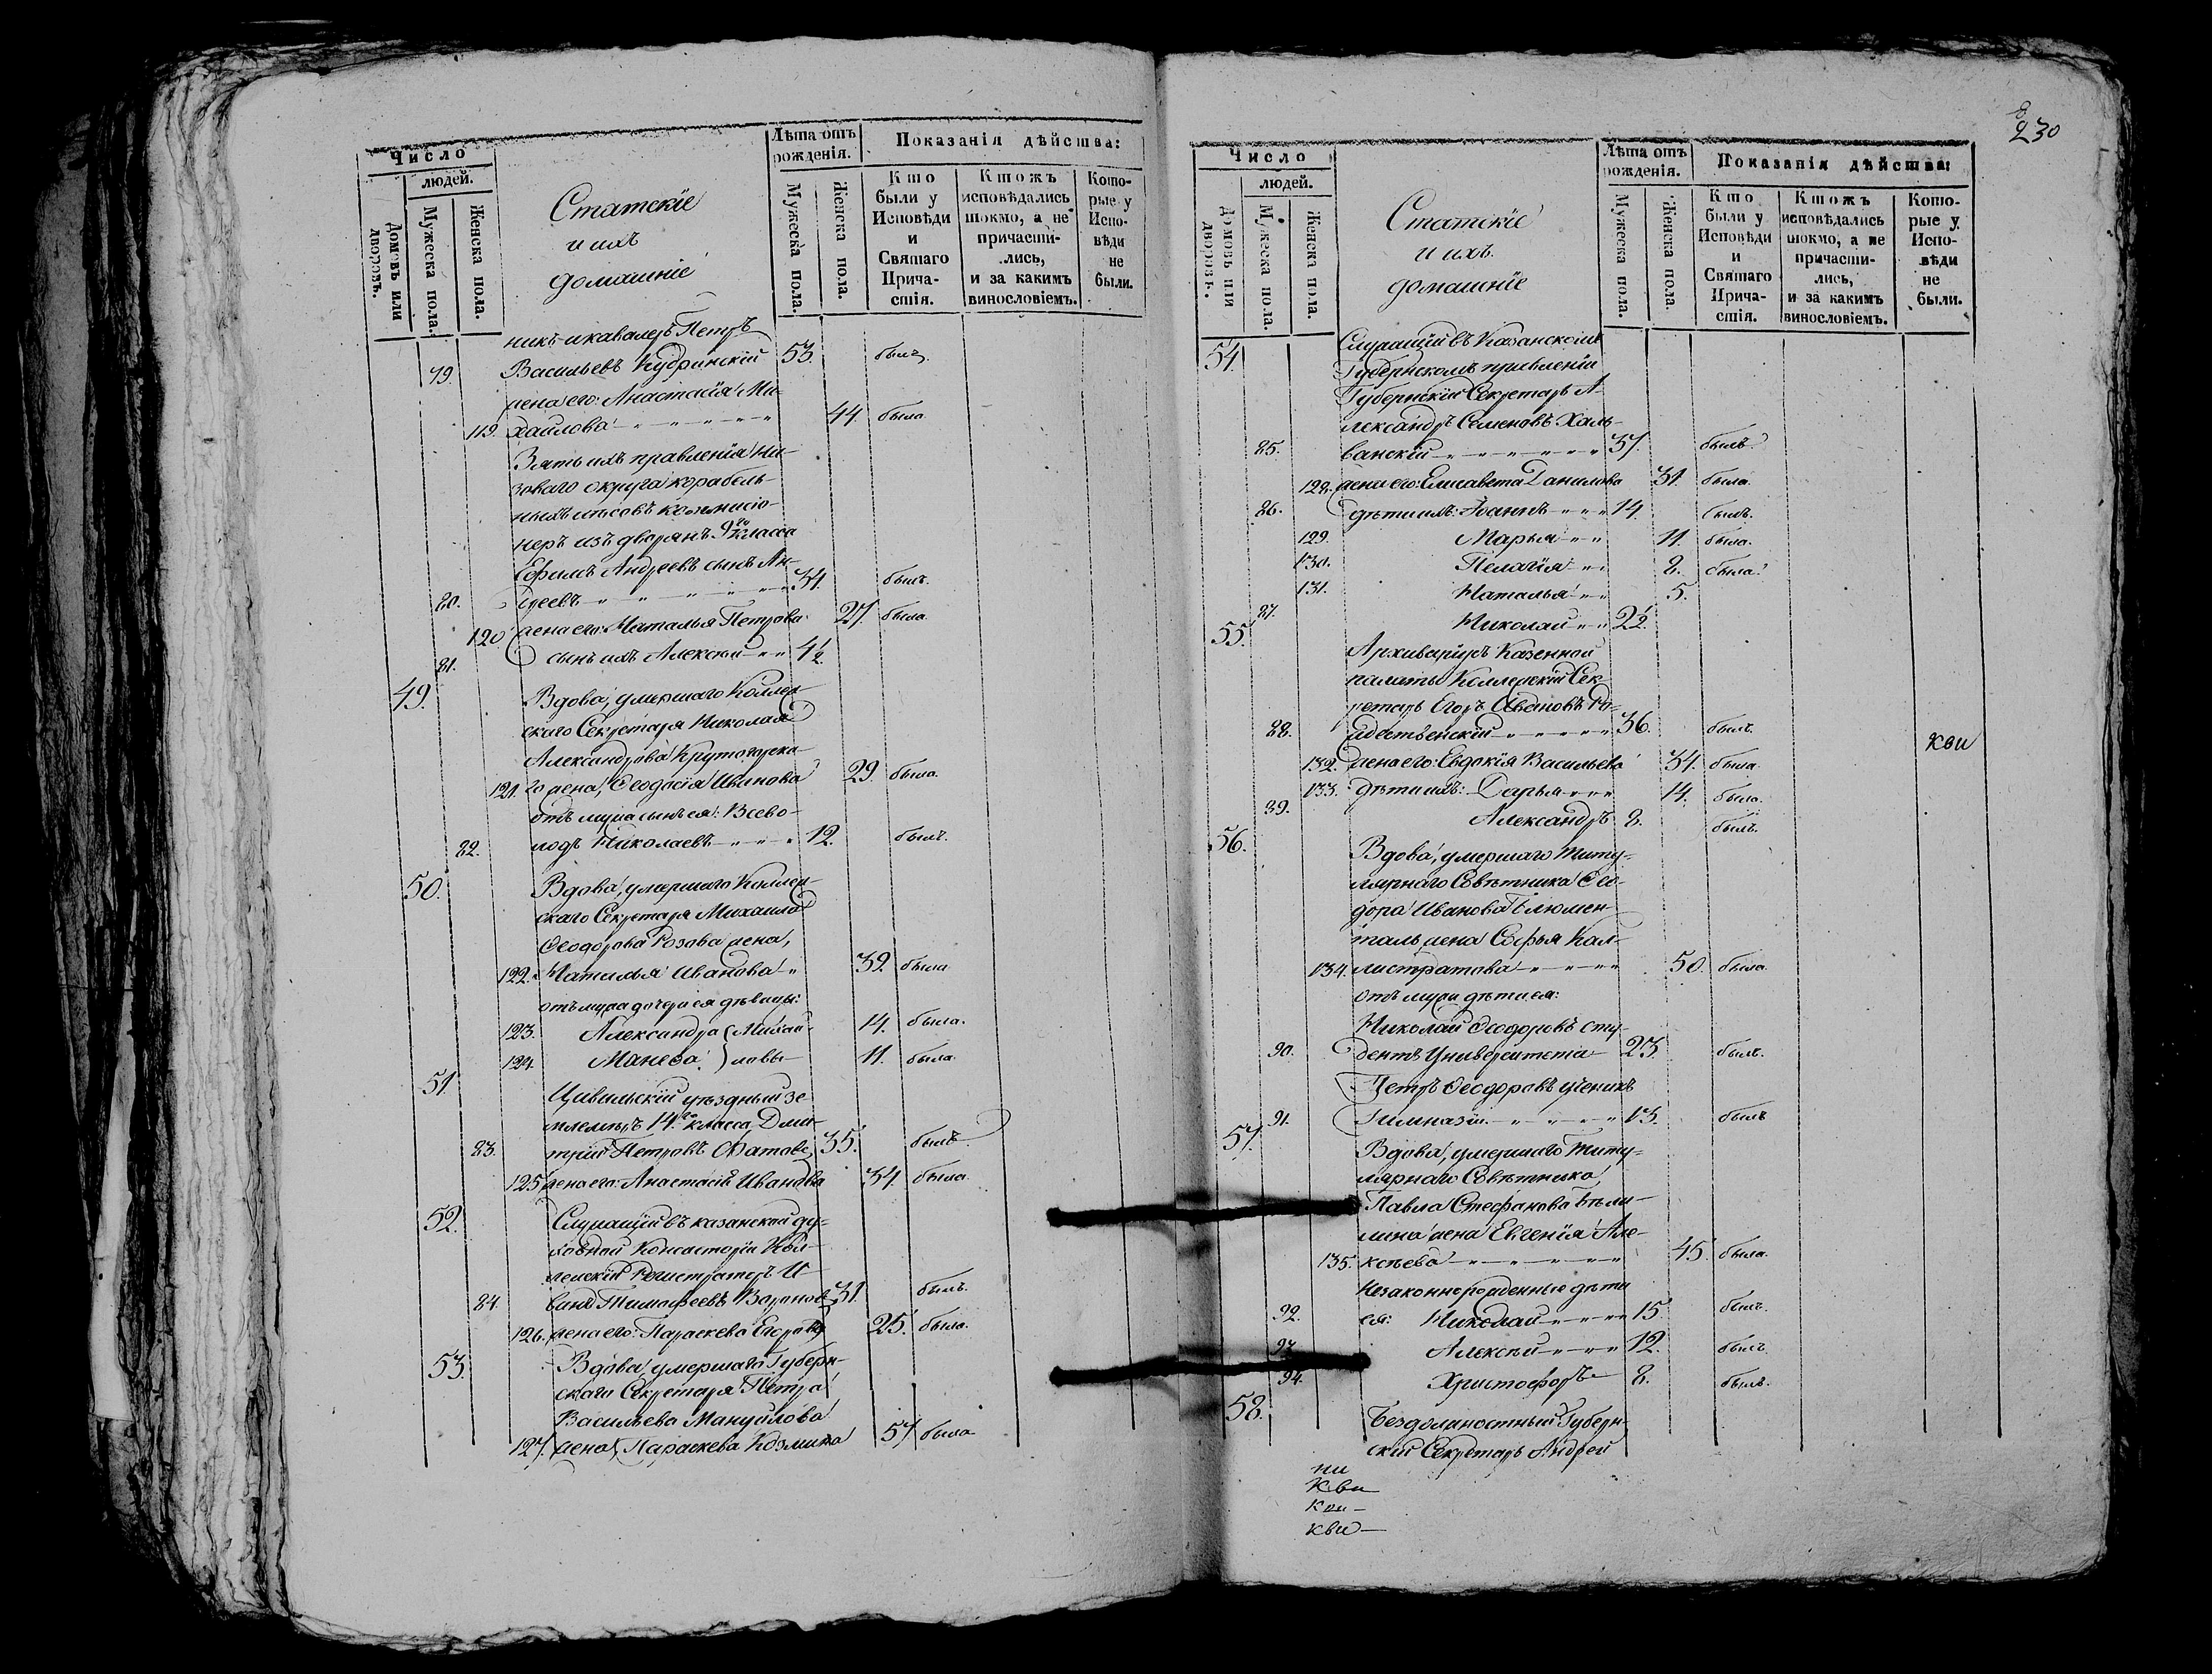 Число
людей.
Домовъ или дворовъ.
Мужеска пола.
Женска пола.
Статскіе
и ихъ
домашніе
Лѣта отъ
рожденія.
Мужеска пола.
Женска пола.
Показанія дѣйства:
Кто
были у
Исповѣди
и
Святаго
Прича-
стія.
Ктожъ
исповѣдались
токмо, а не
причасти-
лись,
и за какимъ
винословіемъ.
Кото-
рые у
Испо-
вѣди
не
были.
никъ и кавалеръ Петръ
79. Васильевъ Кудринскій 53. былъ
жена его: Анастасія Ми-
119. хайлова 44. была.
Зять ихъ правленія ни-
зоваго округа корабель-
ныхъ лѣсовъ коммисіо-
неръ изъ дворянъ 9го класса
Ефимъ Андреевъ сынъ Ан-
80. дреевъ 34. былъ.
120 жена его: Наталья Петрова 27. была
81. сынъ ихъ Алексѣй 1/2.
49. Вдова, умершаго Коллеж-
скаго Секретаря Николая
Александрова Крутогорска-
121. го жена, Ѳеодосія Иванова 29. была.
отъ мужа сынъ ея: Всево-
82. лодъ Николаевъ 12. былъ.
50. Вдова, умершаго Коллеж-
скаго Секретаря Михаила
Ѳеодорова Розова жена,
122. Наталья Иванова 39. была
отъ мужа дочери ея дѣвицы:
123. Александра (Михай- 14. была.
124. Манефа } ловы 11. была.
51. Цивильскій уѣздный зе-
млемѣръ 14го класса Дми-
83. трій Петровъ 35. былъ.
125 жена его: Анастасія Иванова 34. была.
52. Служащій въ казанской ду-
ховной Консисторіи Кол-
лежскій Регистраторъ И-
84. ванъ Тимофеевъ 31. былъ.
126. жена его: Параскева Егорова 25. была.
53. Вдова, умершаго Губерн-
скаго Секретаря Петра
Васильева Мануйлова
127. жена, Параскева Козмина 57 была
230
Число
людей.
Домовъ или дворовъ.
Мужеска пола.
Женска пола.
Статскіе
и ихъ
домашніе
Лѣта отъ
рожденія.
Мужеска пола.
Женска пола.
Показанія дѣйства:
Кто
были у
Исповѣди
и
Святаго
Прича-
стія.
Ктожъ
исповѣдались
токмо, а не
причасти-
лись,
и за какимъ
винословіемъ.
Кото-
рые у
Испо-
вѣди
не
были.
54. Служащій въ Казанскомъ
Губернскомъ правленіи
Губернскій Секретарь А-
лександръ Семеновъ Халь-
85. ванскій 37. былъ.
128. жена его: Елисавета Данилова 31. была.
86. дѣти ихъ: Іоаннъ 14. былъ.
129. Марья 11. была.
130. Пелагія 8. была.
131. Наталья 5.
87. Николай 2 1/2.
55. Архиваріусъ Казенной
палаты Коллежскій Сек-
ретарь Егоръ Ивановъ Ро-
88. ждественскій 36. былъ.
кви
132. жена его: Евдокія Васильева 34. была.
133. дѣти ихъ: Дарья 14. была.
89. Александръ 8. былъ.
56. Вдова, умершаго Титу-
лярнаго Совѣтника Ѳео-
дора Иванова Блюмен-
таль жена Софья Кал-
134. листратова 50. была.
отъ мужа дѣти ея:
Николай Ѳеодоровъ сту-
90. дентъ Университета 23. былъ.
Петръ Ѳеодоровъ ученикъ
91. Гимназіи 13. былъ
57. Вдова, умершаго Титу-
лярнаго Совѣтника,
Павла Стефанова
жена Евгенія Але-
135. ксѣева 45. была.
незаконнорожденные дѣти
92. ея: Николай 15 былъ.
93. Алексѣй 12. былъ.
94. Христофоръ 8. былъ.
58. Бездолжностный Губерн-
скій Секретарь Андрей
ни
Кви
Кви
кви